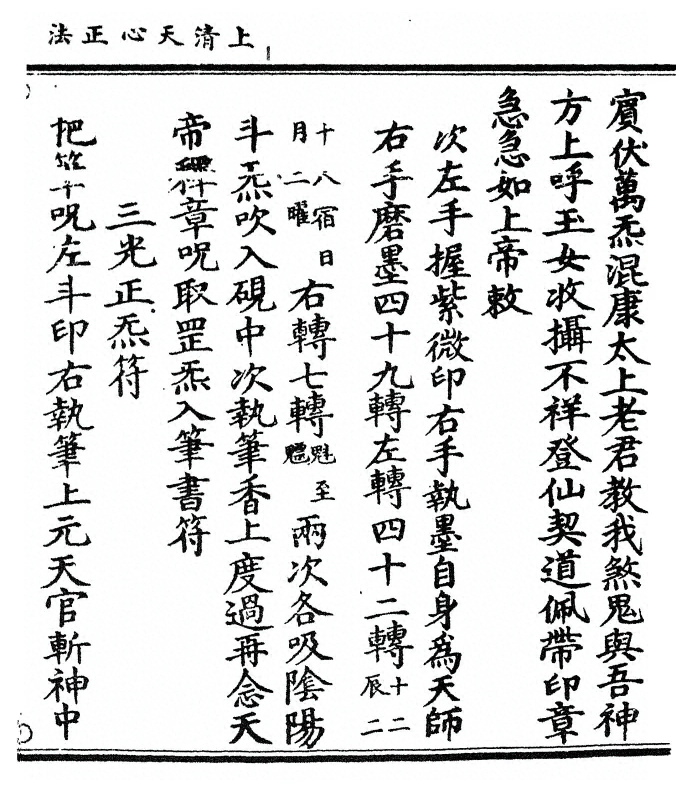 上清天心正法
賓伏萬炁混康太上老君教我煞鬼與吾神
方上呼玉女收攝不祥登仙契道佩帶印章
急急如上帝敕
次左手握紫微印右手執墨自身為天師
右手磨墨四十九轉左轉四十二轉十二辰二
十八宿日月二曜右轉七轉魁至魒兩次各吸陰陽
斗炁吹入硯中次執筆香上度過再念天
帝釋章呪取罡炁入筆書符
三光正炁符
把筆呪左斗印右執筆上元天官斬神中